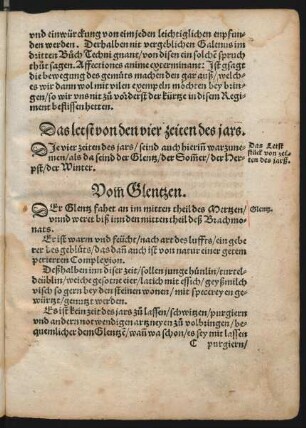 vnd einwürckung von eim jeden leichtiglichen enpfun-
den werden. Derhalben nit vergeblichen Galenus im
dritten Bůch Techni gnant/von disen ein solche spruch
thůt sagen. Affectiones anime exterminant: Ist gsagt
die bewegung des gemüts machen den gar auß/welch-
es wir dann wol mit vilen exempeln möchten bey brin-
gen/so wir vns nit zů vorderst der kürtze in disem Regi-
ment beflissen hetten.
Das leest von den vier zeiten des jars.
DIe vier zeiten des jars/seind auch hierin warzune-
men/als da seind der Glentz/der Somer/der Her-
pst/der Winter.
Das Leest
stück von zei-
ten des jars.
Vom Glentzen.
DEr Glentz fahet an im mitten theil des Mertzen/
vnnd weret biß inn den mitten theil deß Brachmo-
nats.
Glentz.
Er ist warm vnd feücht/nach art des luffts/ein gebe
rer des geblüts/das dan auch ist von natur einer getem
perierten Complexion.
Deßhalben inn diser zeit/sollen junge hünlin/turtel-
deüblin/weichgesotne eier/latich mit essich/geyßmilch
visch so gern bey den steinen wonen/mit specerey en ge-
würtzt/genutzt werden.
Es ist kein zeit des jars zů lassen/schwitzen/purgiern
vnd andern notwendigen artzneyen zů volbringen/be-
quemlicher dem Glentze/wan wa schon/es sey mit lassen
C purgiern/